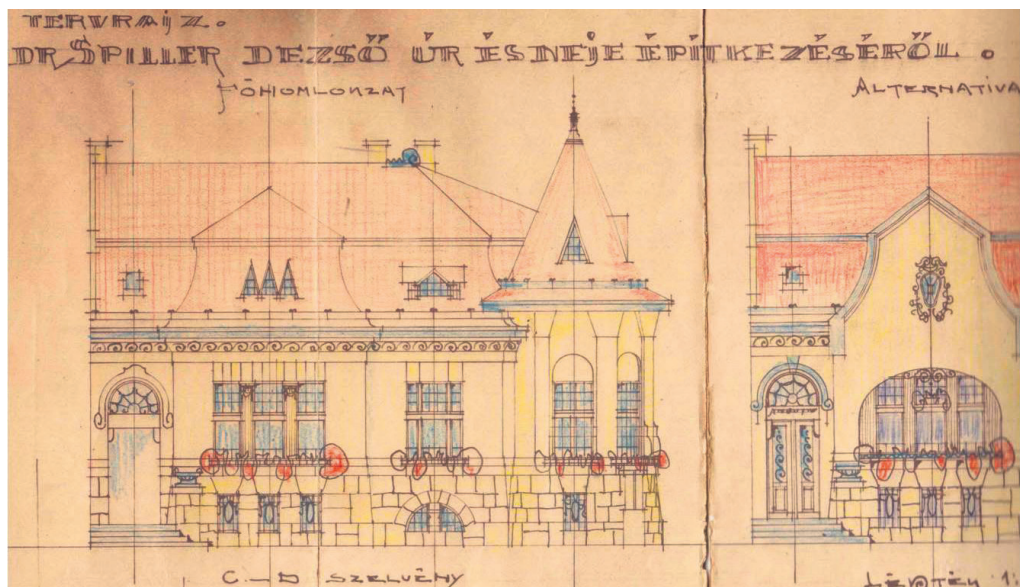 TERVRAJZ.
DR. SPILLER DEZSŐ ÚR ÉS NEJE ÉPÍTKEZÉSÉRŐL.
FŐHOMLOKZAT
ALTERNATIVA
C—D SZELVÉNY
LÉPTÉK 1: